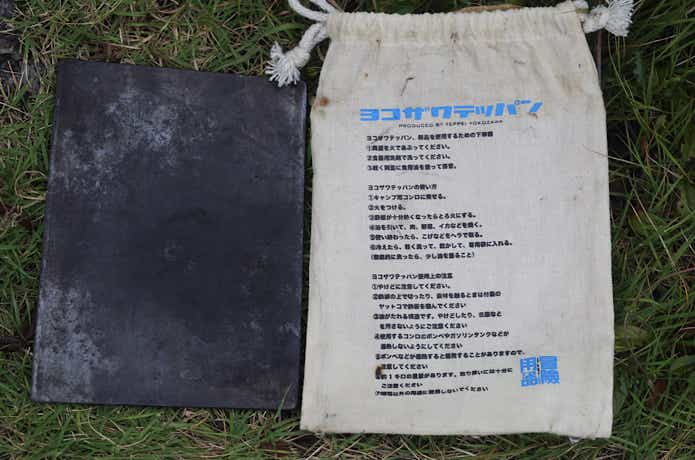 ヨコザワテッパン
PRODUCED BY TEPPEI YOKOZAWA
ヨコザワテッパン、新品を使用するための下準備
①両面を火であぶってください。
②食器用洗剤で洗ってください。
③軽く両面に食用油を塗って保管。
ヨコザワテッパンの使い方
①キャンプ用コンロに乗せる。
②火をつける。
③鉄板が十分熱くなったらとろ火にする。
④油を引いて、肉、野菜、イカなどを焼く。
⑤使い終わったら、こげなどをヘラで取る。
⑥冷えたら、軽く洗って、乾かして、専用袋に入れる。
(徹底的に洗ったら、少し油を塗ること)
ヨコザワテッパン使用上の注意
①やけどに注意してください。
②鉄板の上で切ったり、食材を触るときは付属の
ヤットコで鉄板を掴んでください
③油がたれる構造です。やけどしたり、衣服など
を汚さないようにご注意ください
④使用するコンロのボンベやガソリンタンクなどが
過熱しないようにしてください
⑤ボンベなどが過熱すると爆発することがありますので、
注意してください
1キロの重量があります。取り扱いには十分に
ご注意ください
以外の用途に使用しないでください
冒険
用品